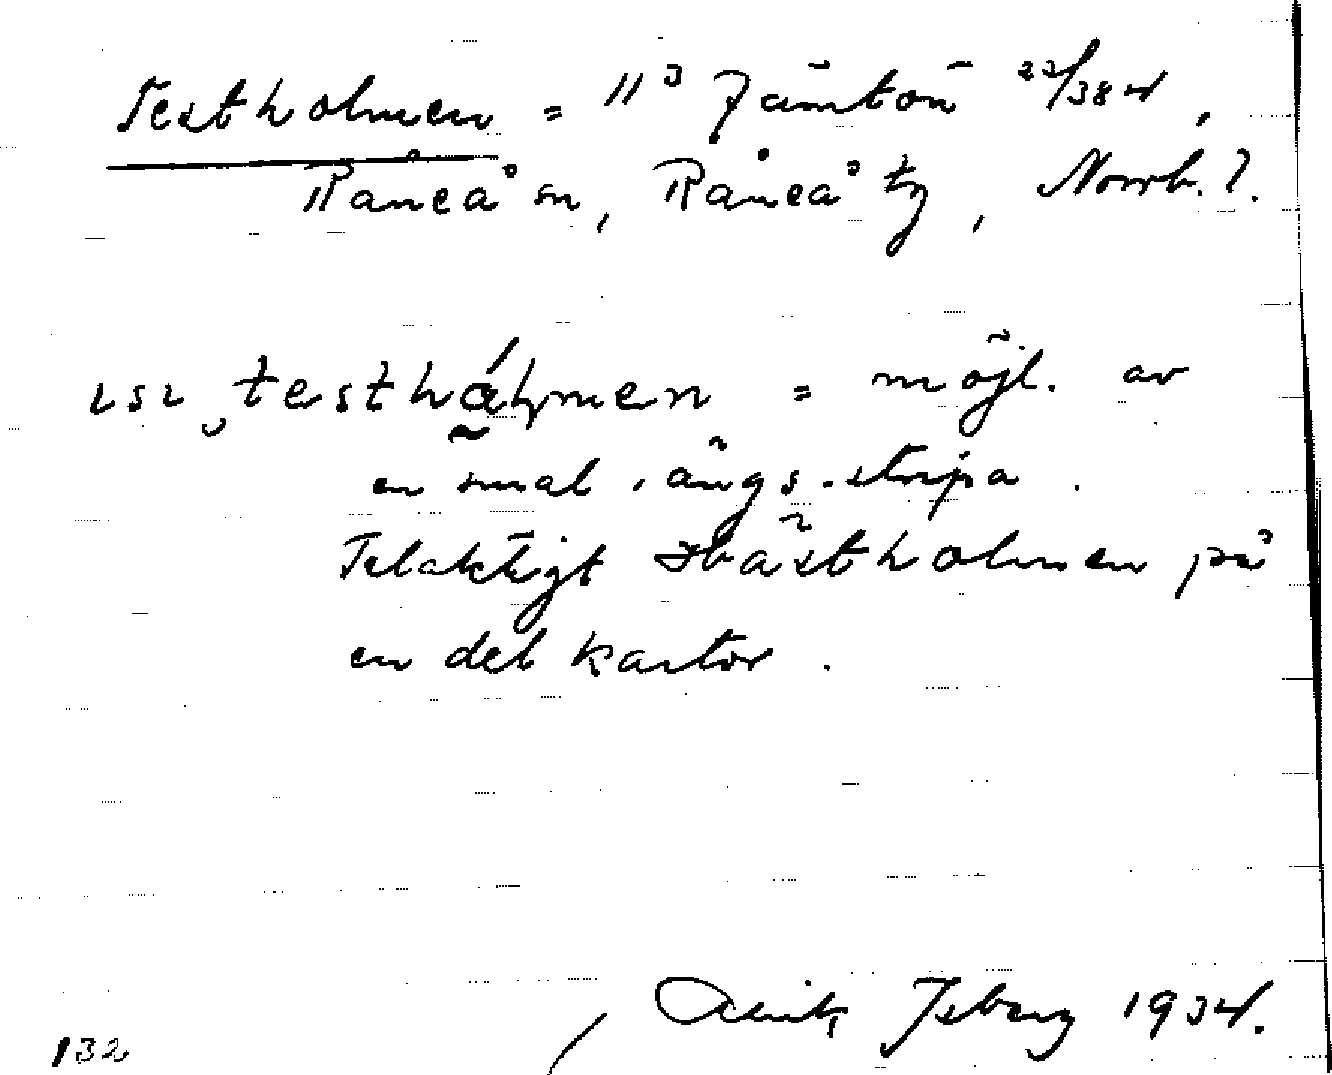 Testholmen = 11³ Jämtön ²²/384,
Råneå sn, Råneå tg, Norrb. l.
testhålmen = möjl. av
en smal ängs-stripa.
Felaktigt Hästholmen på
en del kartor.
Isberg 1934.
132